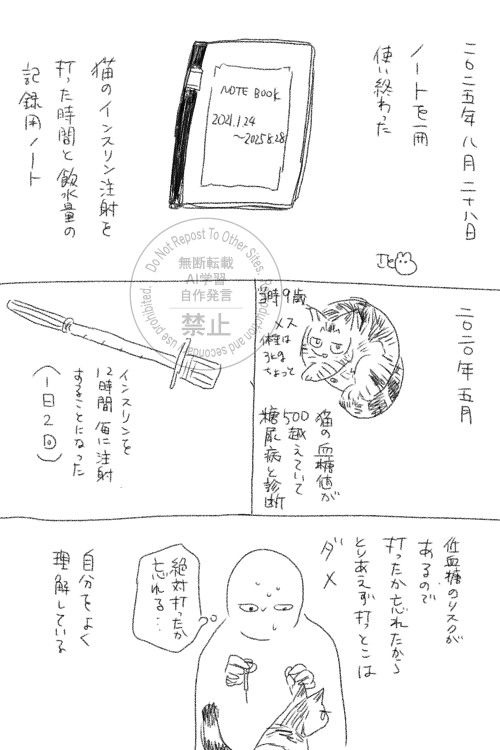 二〇二五年 八月 二十八日
ノートを一冊
使い終わった
NOTE BOOK
2021.1.24
〜2025.8.28
猫のインスリン注射を
打った時間と飲水量の
記録用ノート
さと
Do Not Repost To Other Sites.
無断転載
AI学習
自作発言
禁止
二〇二〇年 五月
当時9歳
メス
体重は
3kgちょっと
猫の血糖値が
500越えていて
糖尿病と診断
インスリンを
12時間毎に注射
することになった
(1日2回)
低血糖のリスクが
あるので
打ったか忘れたから
とりあえず打っとこは
ダメ
絶対打ったか
忘れる…
自分をよく
理解している